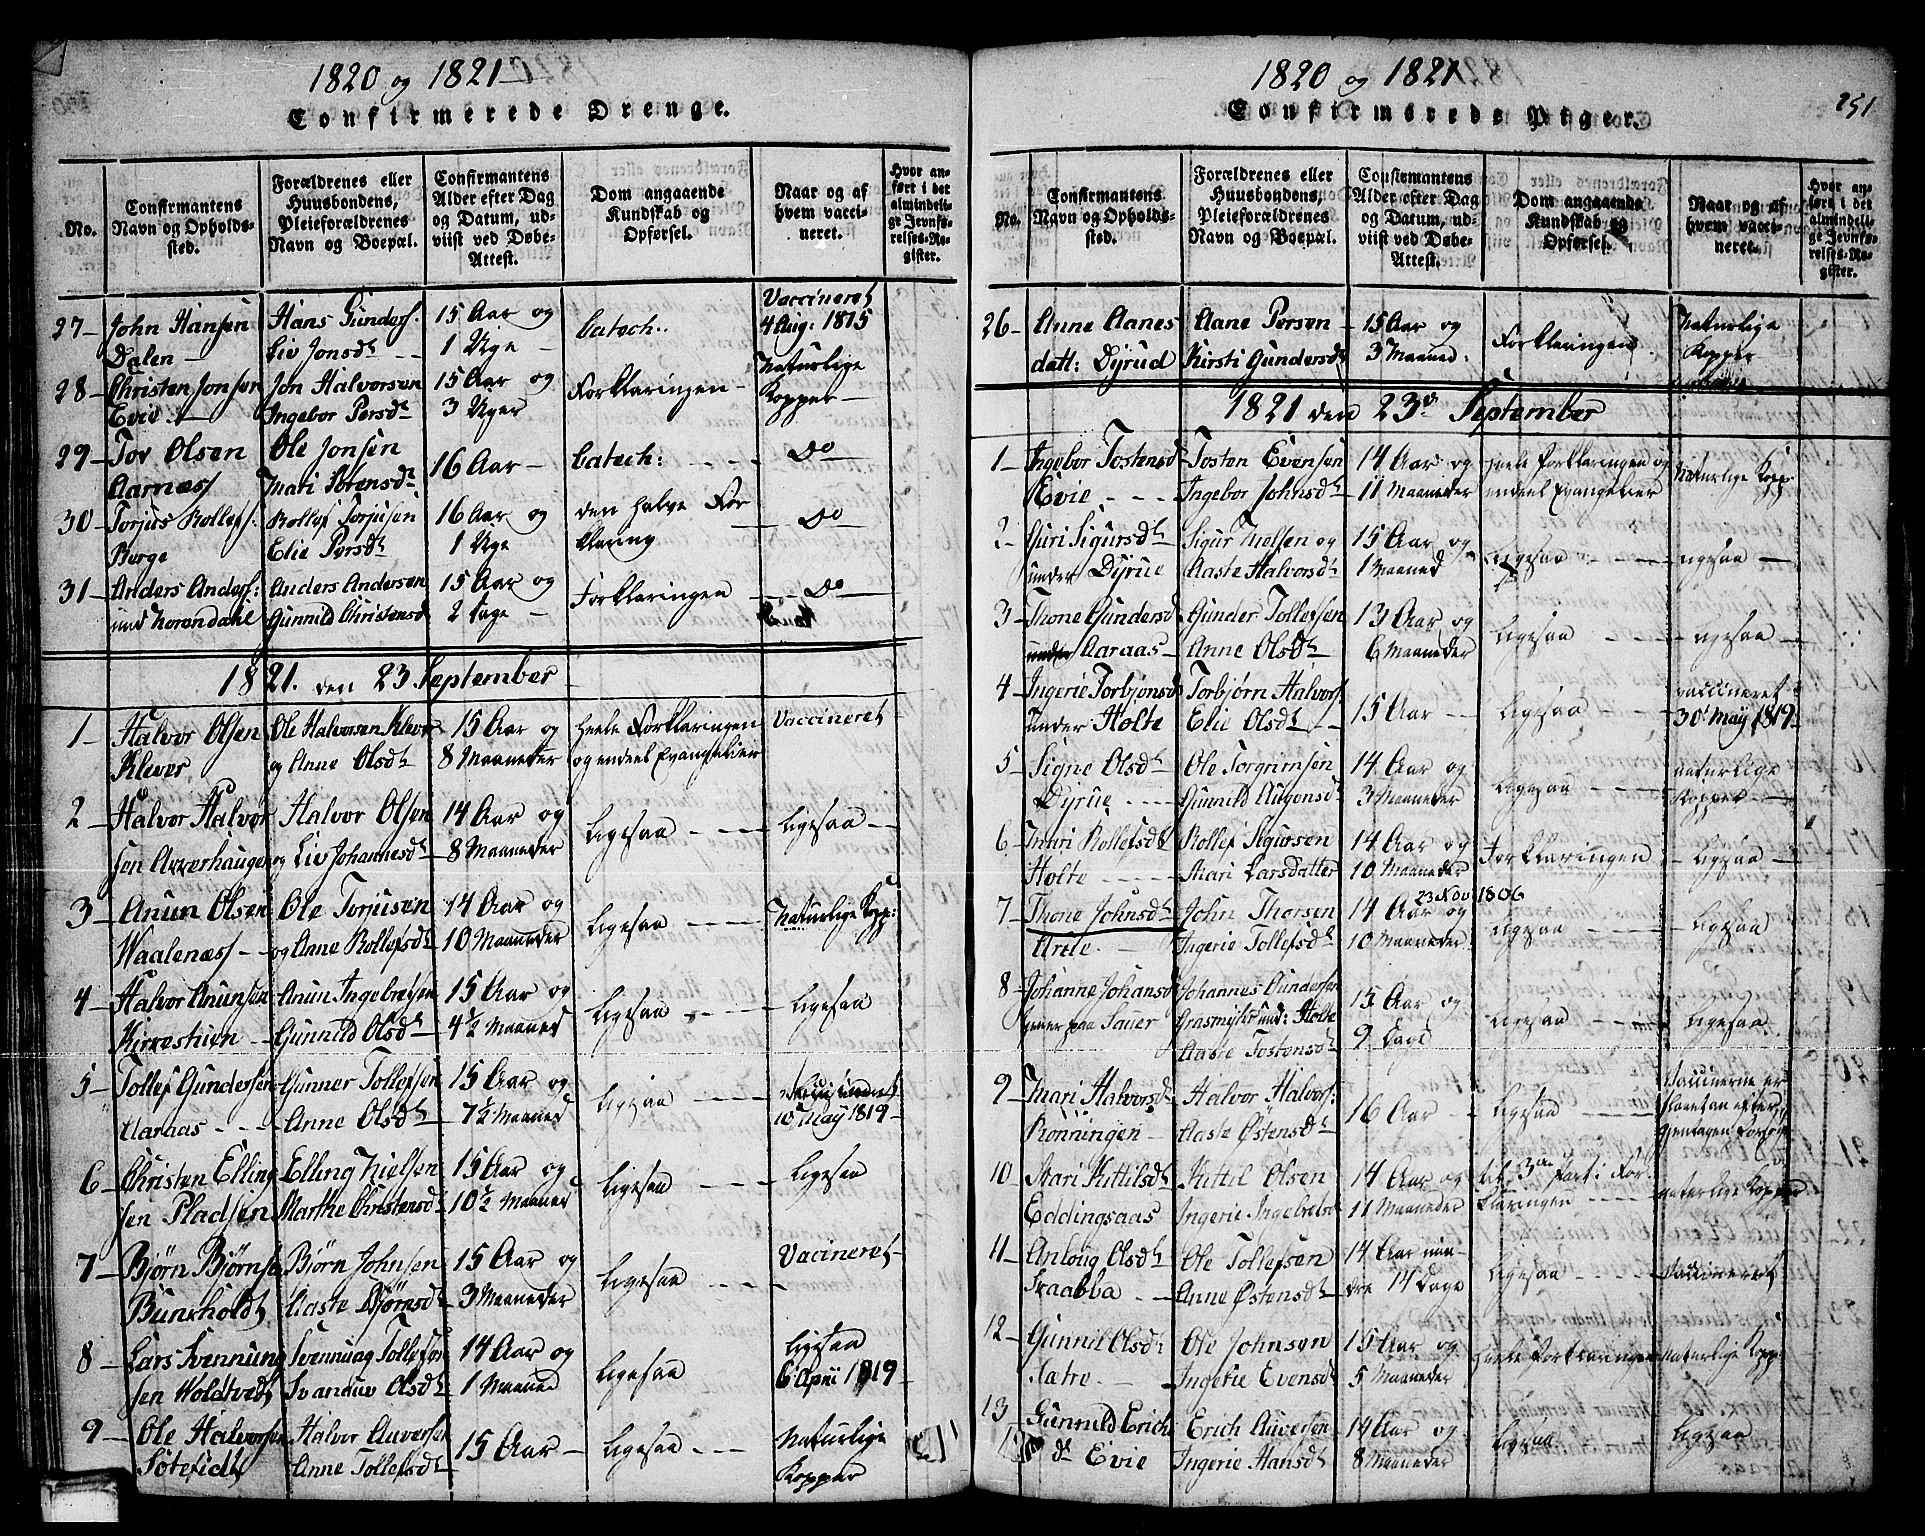 1820 og 1821
Confirmerede Drenge.
No.
Confirmantens Navn og Opholdssted.
Forældrenes eller Huusbondens, Pleieforældrenes Navn og Boepæl.
Confirmantens Alder efter Dag og Datum, udviist ved Døbe-Attest.
Dom angaaende Kundskab og Opførsel.
Naar og af hvem vaccineret.
Hvor anført i det almindelige Jevnførelses-Register.
27 John Hansen Dalen Hans Gunders. Liv Jonsd. 15 Aar og 1 Uge Catech: Vaccineret 4 Aug: 1815
28 Christen Jonsen Evie Jon Halvorsen Ingebor Persd. 15 Aar og 3 Uger Forklaringen Naturlige Kopper
29 Tov Olsen Aarnæss Ole Jonsen Mari Sørensd. 16 Aar Catech: Do
30 Torjus Rollefs: Berge Rollef Torjusen Elie Persd. 16 Aar og 1 Uge den halve Forklaring Do
31 Anders Anders: und Norendahl Anders Andersen Gunnild Christensd 15 Aar og 2 Dage Forklaringen Do
1821. den 23 September
1 Halvor Olsen Klever Ole Halvorsen Klever og Anne Olsd. 15 Aar og 8 Maaneder heele Forklaringen og endeel Evangelier Vaccineret
2 Halvor Halvorsen Akerhaugen Halvor Olsen og Liv Johannesd. 14 Aar og 8 Maaneder Ligesaa Ligesaa
3 Anun Olsen Waalenæss Ole Torjusen og Anne Rollefsd. 14 Aar og 10 Maaneder Ligesaa Naturlige Kopp:
4 Halvor Anunsen Kirkestuen Anun Ingebretsen Gunnild Olsd. 15 Aar og 4½ Maaned Ligesaa Ligesaa
5 Tollef Gundersen Aaraas Gunner Tollefsen Anne Olsd. 15 Aar og 7½ Maaned Ligesaa Vaccineret 10 May 1819
6 Christen Ellingsen Pladsen Elling Nielsen Marthe Christensd. 15 Aar og 10½ Maaned Ligesaa Ligesaa
7 Bjørn Bjørnsen Bunkholdt Bjørn Johnsen Aaste Bjørnsd. 15 Aar og 3 Maaneder Ligesaa Vacineret
8 Lars Svennungsen Woldtvedt Svennung Tollefsen Svanduv Olsd. 14 Aar og 1 Maaned Ligesaa Ligesaa 6 April 1819
9 Ole Halvorsen Halvor Auversen Anne Tollefsd. 15 Aar Ligesaa Naturlige Kopper
1820 og 1821
Confirmerede Piger.
251
No.
Confirmantens Navn og Opholdssted.
Forældrenes eller Huusbondens, Pleieforældrenes Navn og Boepæl.
Confirmantens Alder efter Dag og Datum, udviist ved Døbe-Attest.
Dom angaaende Kundskab og Opførsel.
Naar og af hvem vaccineret.
Hvor anført i det almindelige Jevnførelses-Register.
26 Anne Aanesdatt: Dyrud Aane Persen Kirsti Gundersd. 15 Aar og 3 Maaned: Forklaringen Naturlige Kopper
1821 den 23d September
1 Ingebor Tostensd Evie Tosten Evensen Ingebor Johnsd. 14 Aar og 11 Maaneder heele Forklaringen og endeel Evangelier Naturlige Kopp.
2 Guri Sigursd. under Dyrue Sigur Nielsen og Aaste Halvorsd. 15 Aar og 1 Maaned Ligesaa Ligesaa
3 Thone Gundersd under Aaraas Gunder Tollefsen Anne Olsd. 13 Aar og 6 Maaneder Ligesaa Ligesaa
4 Ingerie Torbjonsd under Holte Torbjørn Halvors Elie Olsd. 15 Aar Ligesaa vaccineret 30t May 1819
5 Signe Olsd. Dyrue Ole Torgrimsen Gunnild Augonsd. 14 Aar og 3 Maaneder Ligesaa naturlige Kopper
6 Mari Rollefsd. Holte Rollef Sigursen Mari Larsdatter 14 Aar og 10 Maaneder Forklaringen Ligesaa
7 Thone Johnsd. John Thorsen Ingerie Tollefsd. 14 Aar og 10 Maaneder 23 Nov 1806 Ligesaa Ligesaa
8 Johanne Johansd. paa Sauer Johannes Gundersen Grasmyhr und: Holte Aaste Tostensd. 15 Aar og 9 Dage Ligesaa Ligesaa
9 Mari Halvorsd. Rønningen Halvor Halvors: Aaste Østensd. 16 Aar Ligesaa Vaccinerne er efter gjentagen Forsøg
10 Mari Kittilsd. Eddingsaas Kittil Olsen Ingerie Ingebretsd. 14 Aar og 11 Maaneder til 3die Part: Forklaringen naturlige Kopper
11 Anloug Olsd. Skaabba Ole Tollefsen Anne Østensd. 14 Aar mindre 14 Dage Ligesaa Vaccineret
12 Gunnil Olsd. Sætre Ole Johnsen Ingerie Evensd. 15 Aar og 5 Maaneder Heele Forklaringen naturlige Kopp
13 Gunnild Erichsd. Evie Erich Auversen Ingerie Hansd. 14 Aar og 8 Maaneder Ligesaa Ligesaa